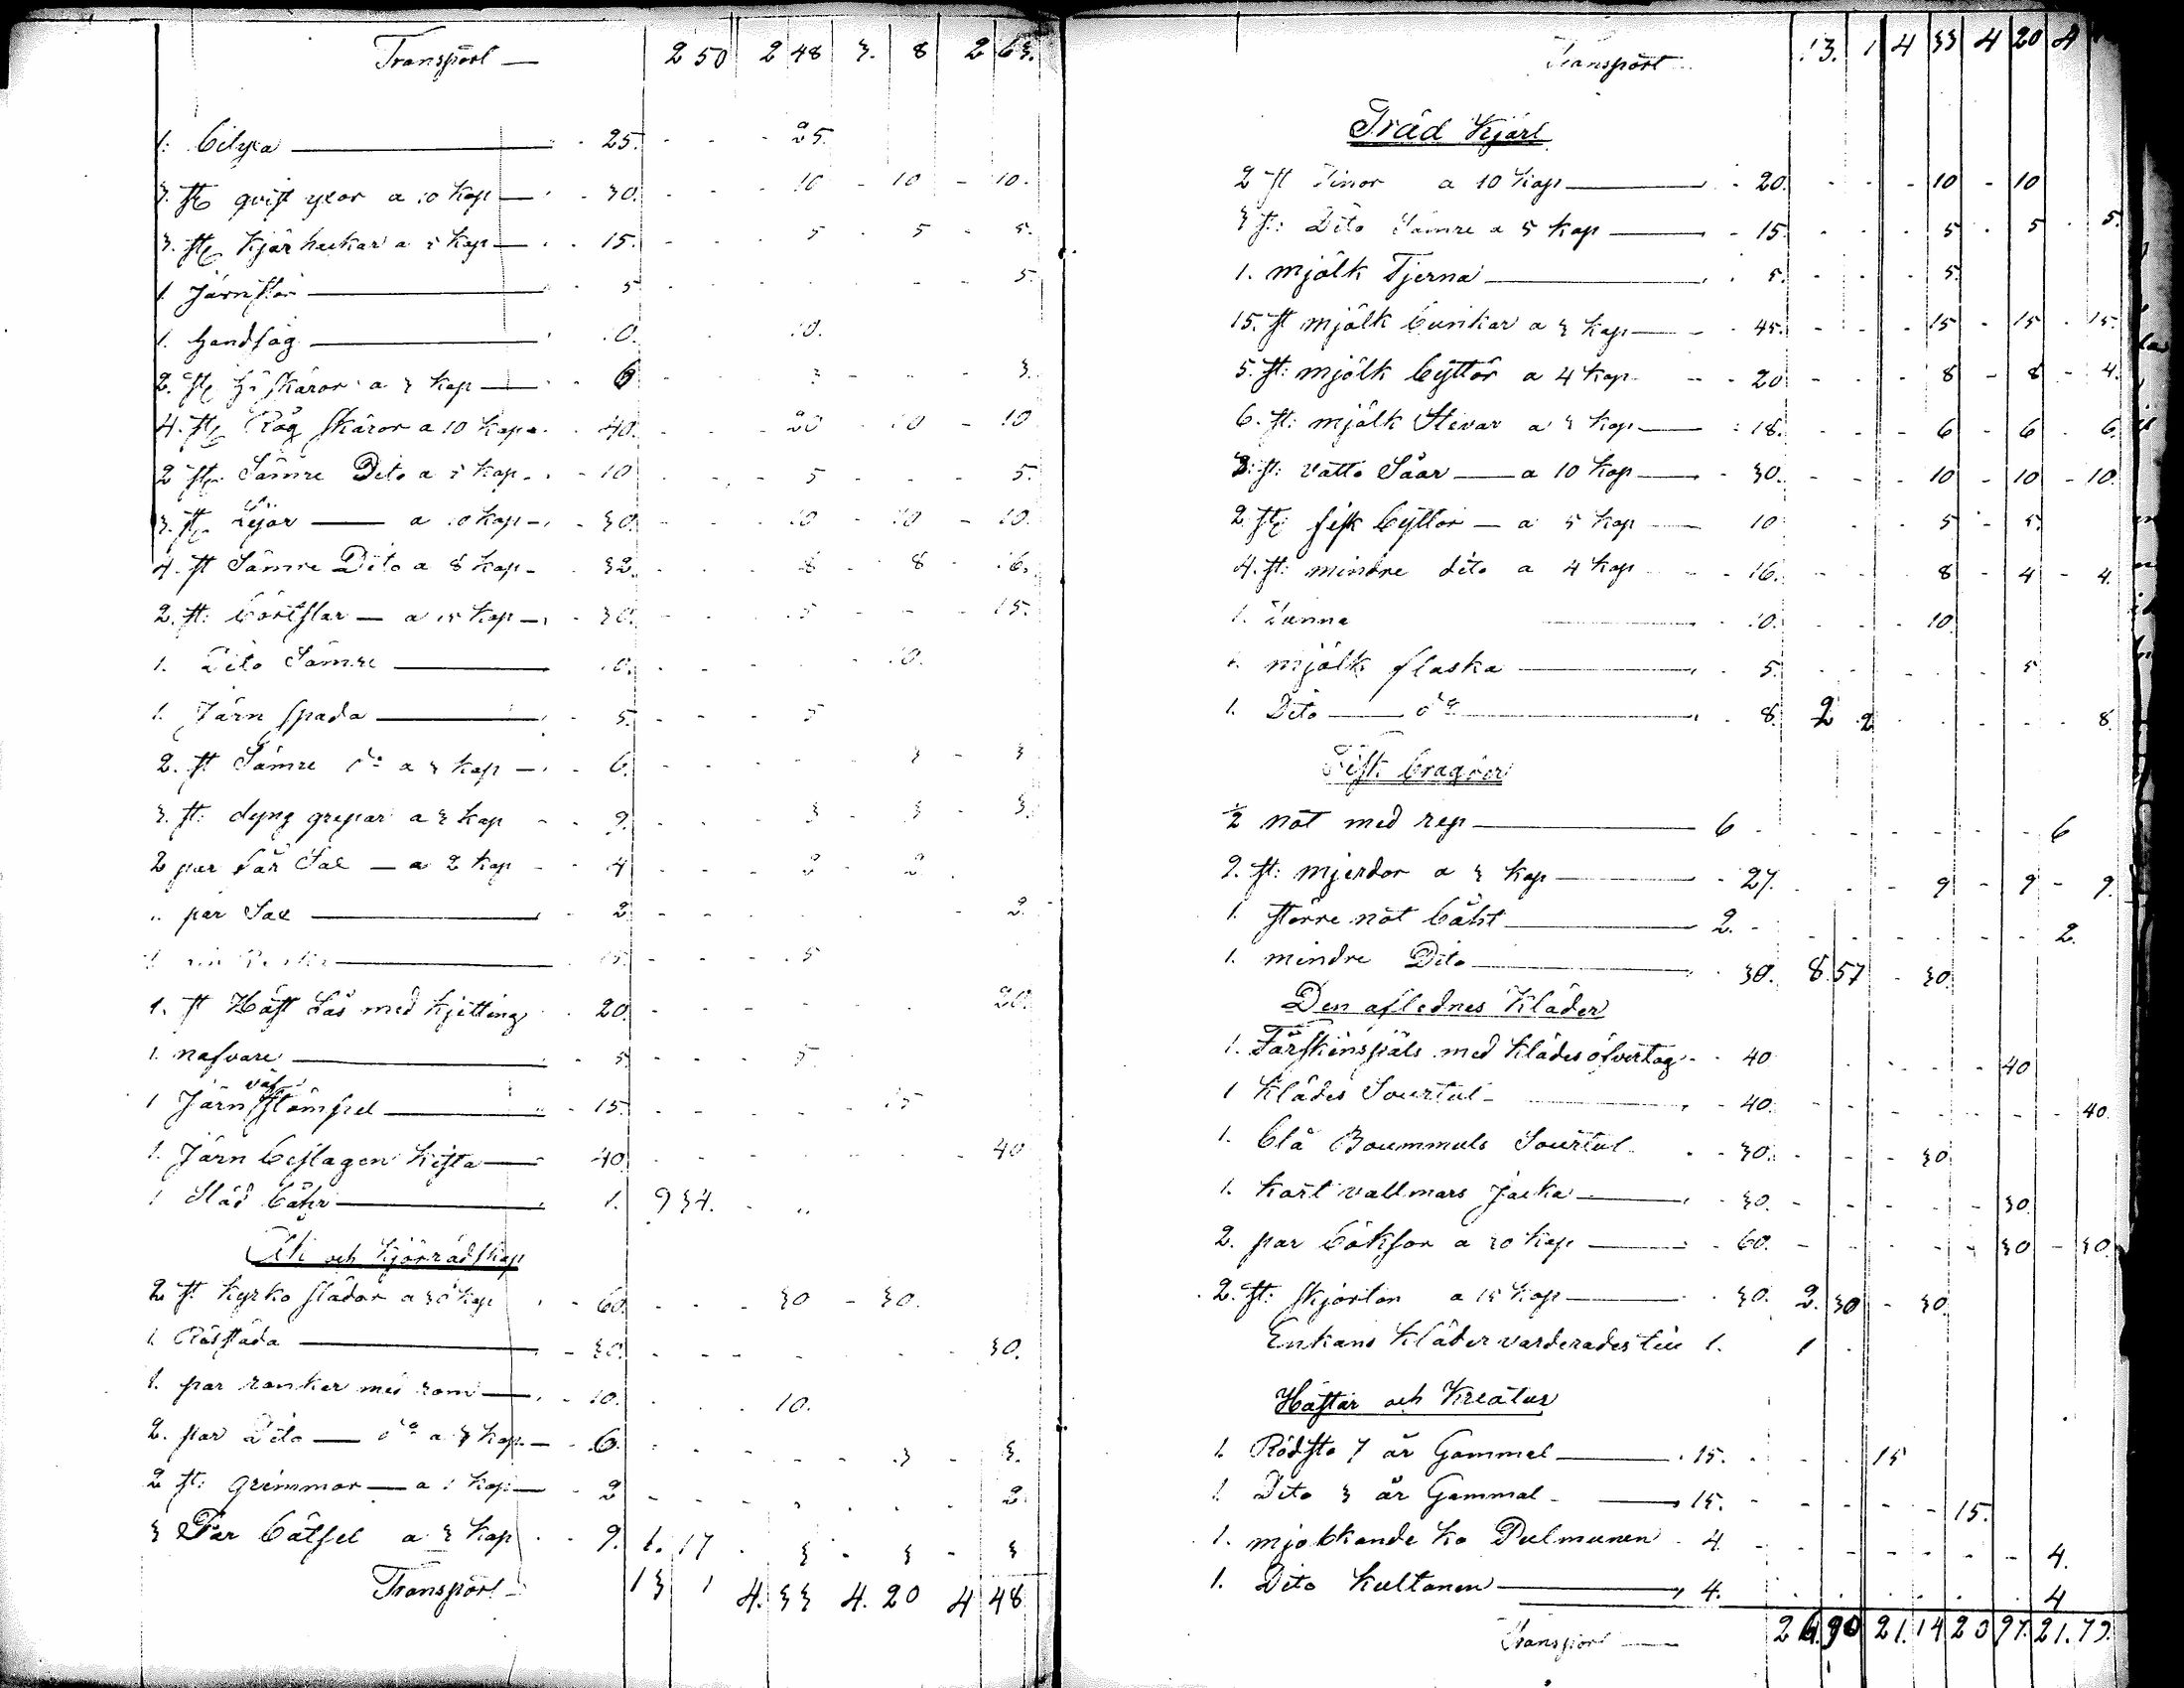 Transport — 2 50 2 48 3. 8 2 63.
1. bilyxa — 25. - - - 25.
3. st qvist yxor a 10 kop — 30. - - - 10 - 10 - 10.
3. st kjärhackar a 5 kop — 15. - - - 5 - 5 - 5.
1 Järnstör — 5 5.
1. handsåg — 10. 10.
2. st Höskäror a 3 kop — 6 3 3.
4. st Råg skäror a 10 kop 40. 20 - 10 - 10
2 st Sämre Dito a 5 kop 10 5 5.
3. st Lijor — a 10 kop — 30. 10 - 10 - 10.
4. st Sämre Dito a 8 kop 32. 8 - 8 - 16.
2. st: börtslar — a 15 kop — 30. 15 15.
1. Dito Sämre — 10. 10.
1. Järn spada — 5. 5
2. st Sämre do a 3 kop — 6. 3 - 3
3. st: dyng grepar a 3 kop 9. 3 - 3 - 3.
2 par får Sax — a 2 kop 4 2 - 2
„ par Sax — 2 2.
15. 15
1. st Häst Lås med kjitting 20. 20.
1. nafvare — 5. 5.
1 Järn väf stämpel — 15. 15
1. Järn beslagen kista — 40 40
1 Städ — 1. 9 34.
Åk och kjörrädskap
2 st kyrko slädor a 30 kop 60. 30 - 30.
1. Råssläda — 30. 30.
1. par ranker med ram — 10. 10.
2. par Dito — do a 3 kop — 6. 3 - 3.
2 st: grimmor — a 1 kop — 2 2.
3 Par bätsel a 3 kop 9. 1. 17 3 - 3 - 3
Transport 13 1 4. 33 4. 20 4 48
Transport 13. 1 4 33 4 20 4
Träd kjärl
2 st Tinor a 10 kop — 20. 10 - 10
3 st: Dito Sämre a 5 kop — 15. 5 - 5 - 5.
1. mjölk Tjerna — 5. 5.
15. st mjölk bunkar a 3 kop — 45. 15 - 15 - 15.
5. st: mjölk byttor a 4 kop 20 8 - 8 - 4.
6. st: mjölk Stevar a 3 kop — 18. 6 - 6 - 6.
3. st: vatto Såar — a 10 kop — 30. 10 - 10 - 10.
2. st fisk byttor — a 5 kop — 10 5 - 5.
4. st: mindre dito a 4 kop 16. 8 - 4 - 4.
1. Tunna 10. 10.
1. mjölk flaska — 5. 5
1. Dito — do — 8. 2 2 8.
Fisk bragder
1/2 nöt med rep — 6 6
9. st: mjerdor a 3 kop — 27. 9 - 9 - 9.
1. större nöt båht — 2. 2.
1. mindre Dito — 30. 8 57 - 30.
Den aflednes kläder
1. Fårskinspäls med klädes öfvertag 40 40
1 klädes Sourtut 40. 40.
1. blå Boummuls Sourtut 30. 30.
1. kort vallmars jacka — 30. 30.
2. par böksor a 30 kop — 60. 30 - 30.
2. st: skjortor a 15 kop — 30. 2. 30 - 30.
Enkans kläder varderades till 1. 1
Hästar och Kreatur
1. Rödsto 7 år Gammel — 15. 15
1 Dito 3 år Gammal — 15. 15.
1. mjolkande ko Pulmunen 4 4.
1. Dito Kultanen — 4. 4
Transport — 26 90 21. 14 20 97. 21. 79.